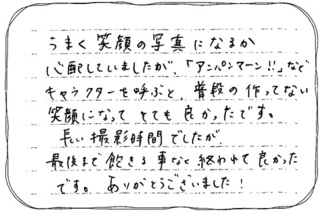 うまく笑顔の写真になるか
心配していましたが、「アンパンマーン!!」など
キャラクターを呼ぶと、普段の作ってない
笑顔になって とても良かったです。
長い撮影時間でしたが、
最後まで飽きる事なく終われて良かった
です。ありがとうございました!